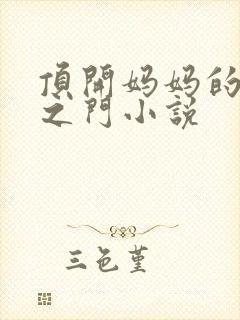 頂開妈妈的
之門小説
三色堇